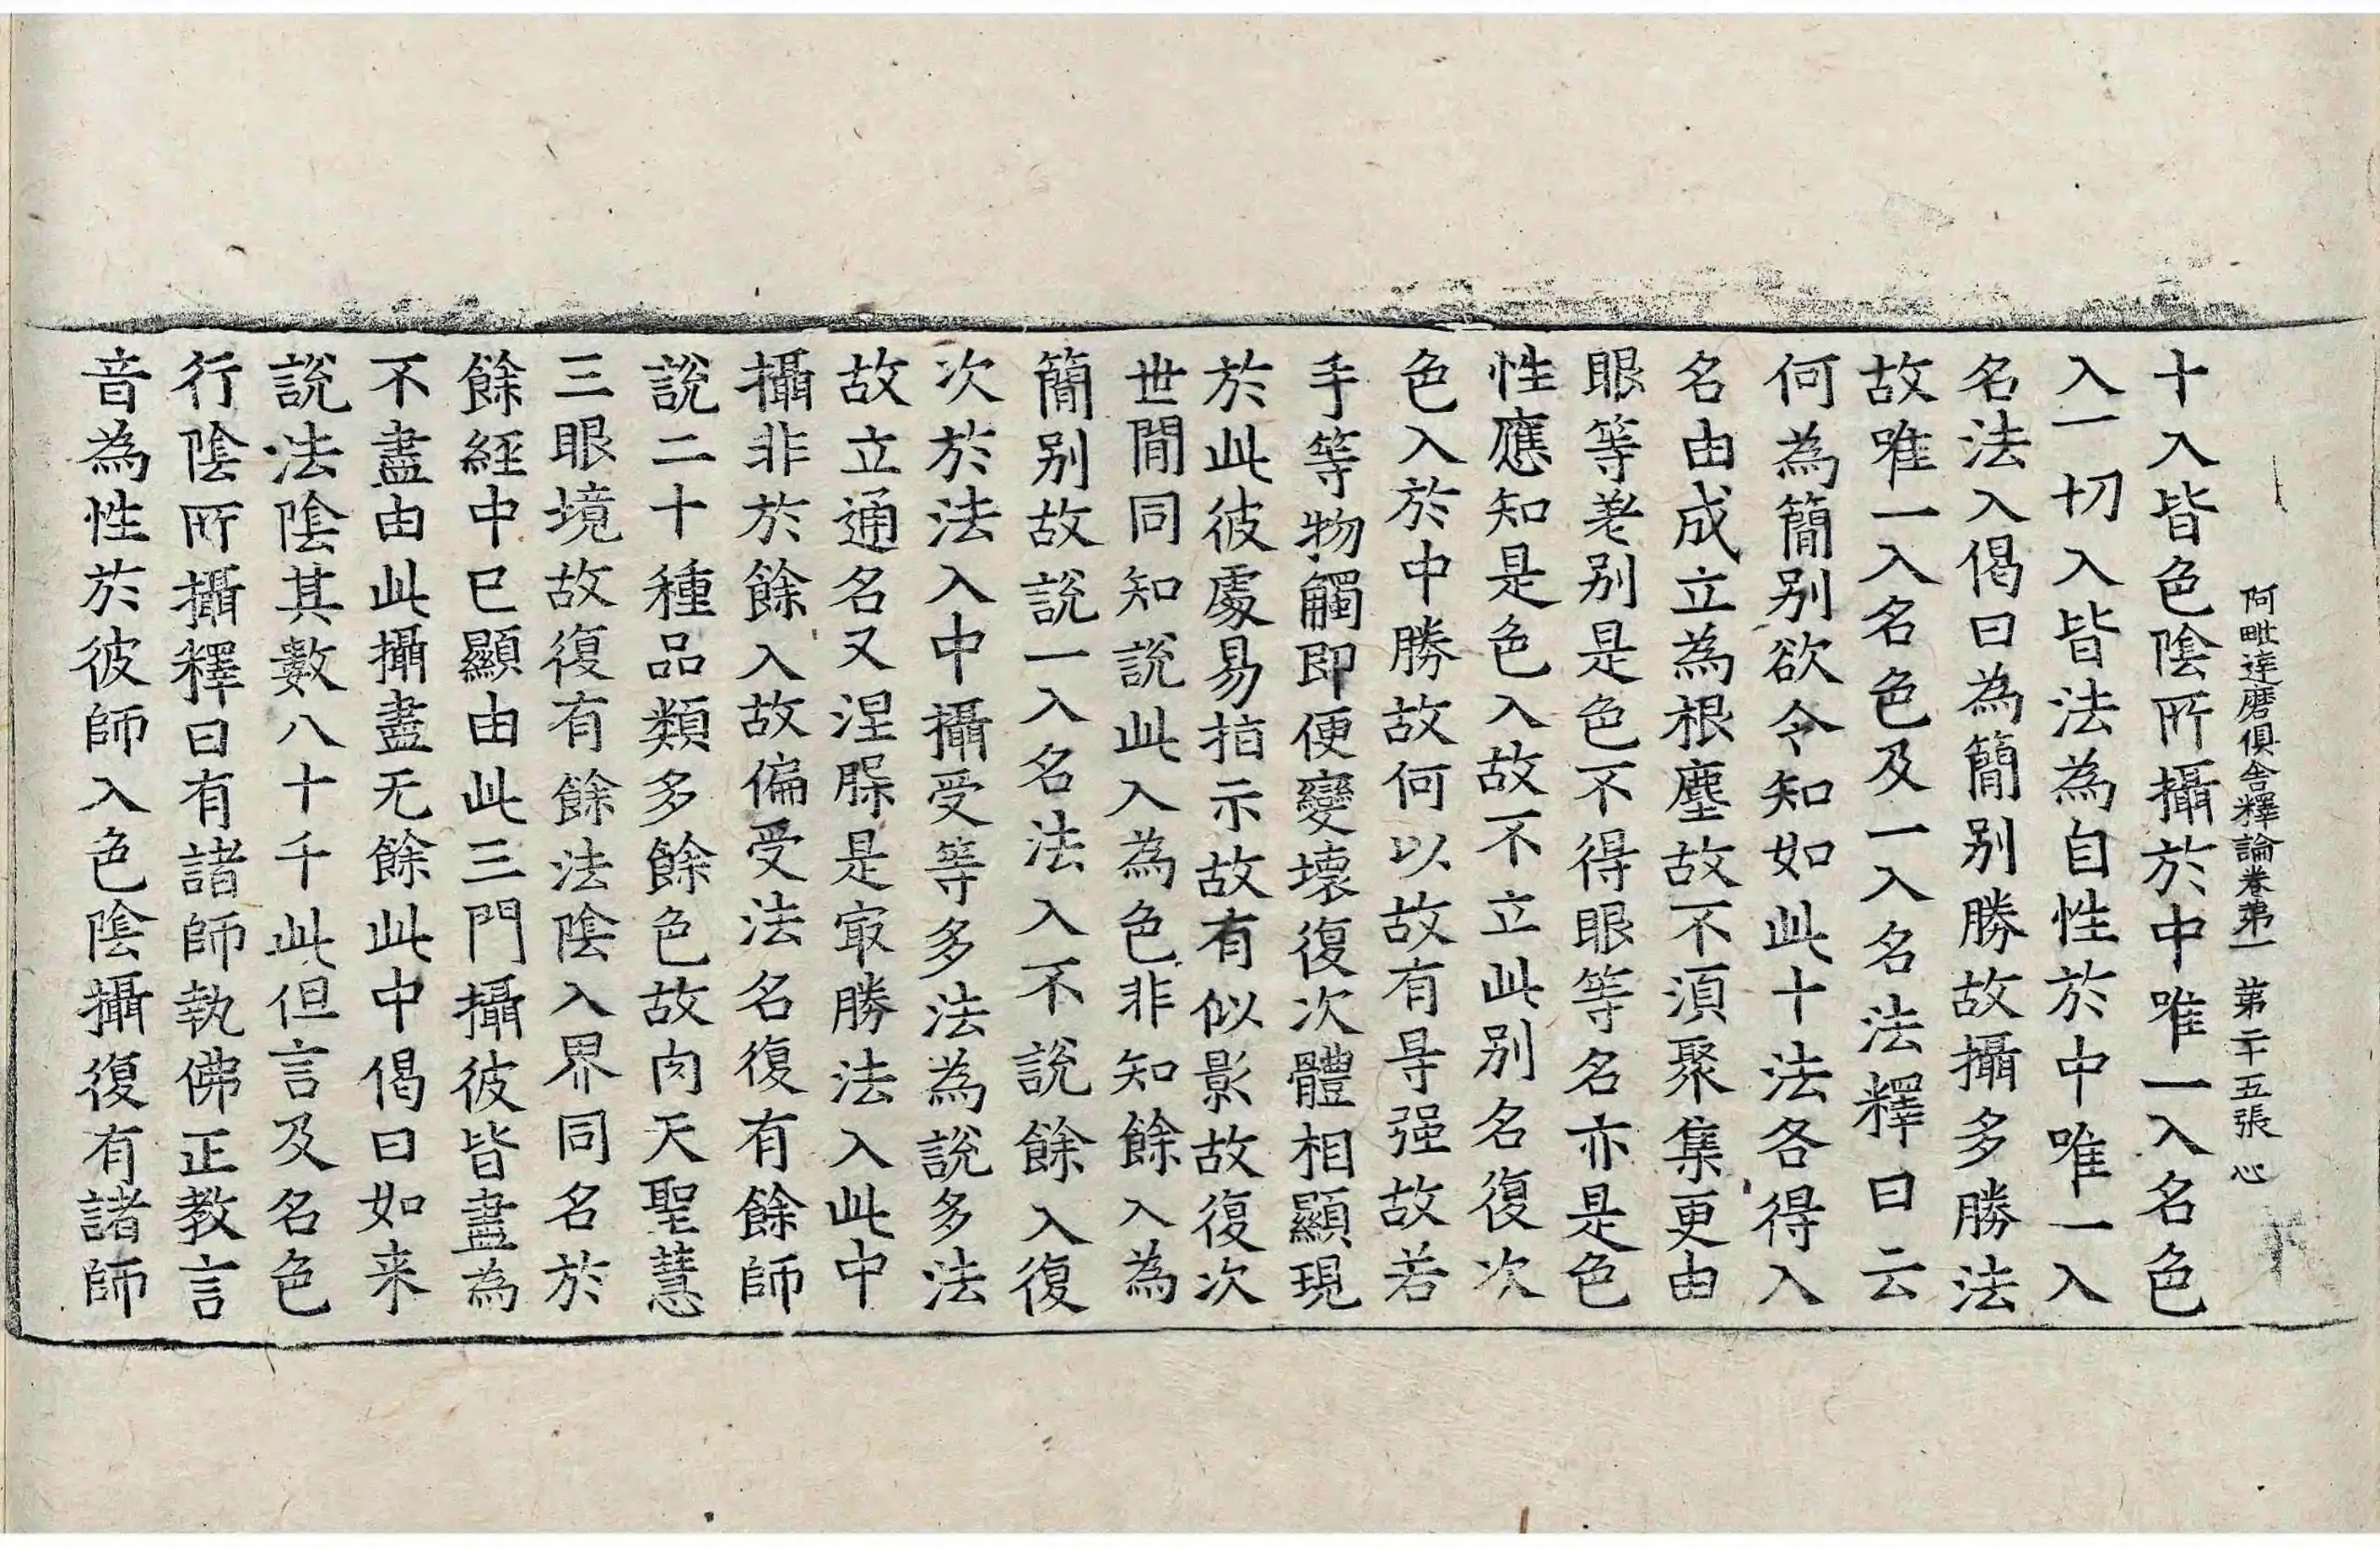 阿毗達磨俱舍釋論卷苐一 苐二十五張 心
十入皆色陰所攝於中唯一入名色
入一切入皆法為自性於中唯一入
名法入偈曰為簡别勝故攝多勝法
故唯一入名色及一入名法釋曰云
何為簡别欲令知如此十法各得入
名由成立為根塵故不湏聚集更由
眼等差别是色不得眼等名亦是色
性應知是色入故不立此别名復次
色入於中勝故何以故有㝵强故若
手等物觸即便變壞復次體相顯現
於此彼處易指示故有似影故復次
世間同知說此入為色非知餘入為
簡别故說一入名法入不說餘入復
次於法入中攝受等多法為說多法
故立通名又涅槃是㝡勝法入此中
攝非於餘入故偏受法名復有餘師
說二十種品類多餘色故肉天聖慧
三眼境故復有餘法陰入界同名於
餘經中已顯由此三門攝彼皆盡為
不盡由此攝盡无餘此中偈曰如来
說法陰其數八十千此但言及名色
行陰所攝釋曰有諸師執佛正教言
音為性於彼師入色陰攝復有諸師